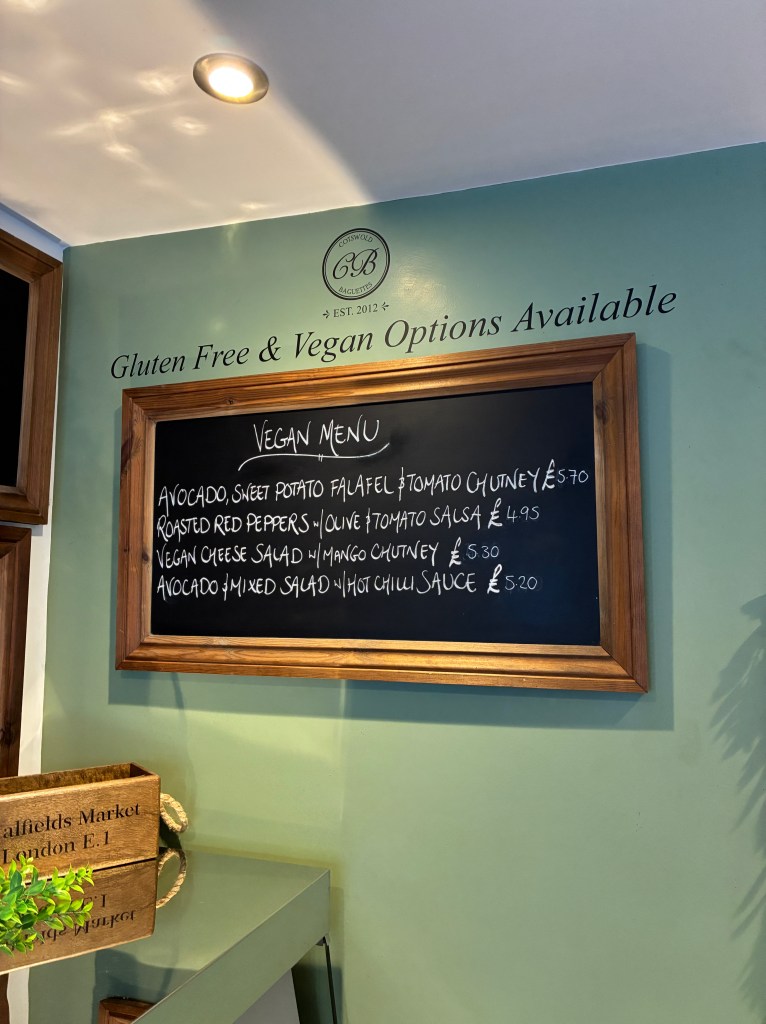 COTSWOLD
CB
BAGUETTES
EST. 2012
Gluten Free & Vegan Options Available
VEGAN MENU
AVOCADO, SWEET POTATO FALAFEL & TOMATO CHUTNEY £5.70
ROASTED RED PEPPERS w/ OLIVE & TOMATO SALSA £4.95
VEGAN CHEESE SALAD w/ MANGO CHUTNEY £5.30
AVOCADO & MIXED SALAD w/ HOT CHILLI SAUCE £5.20
alfields Market
London E.1